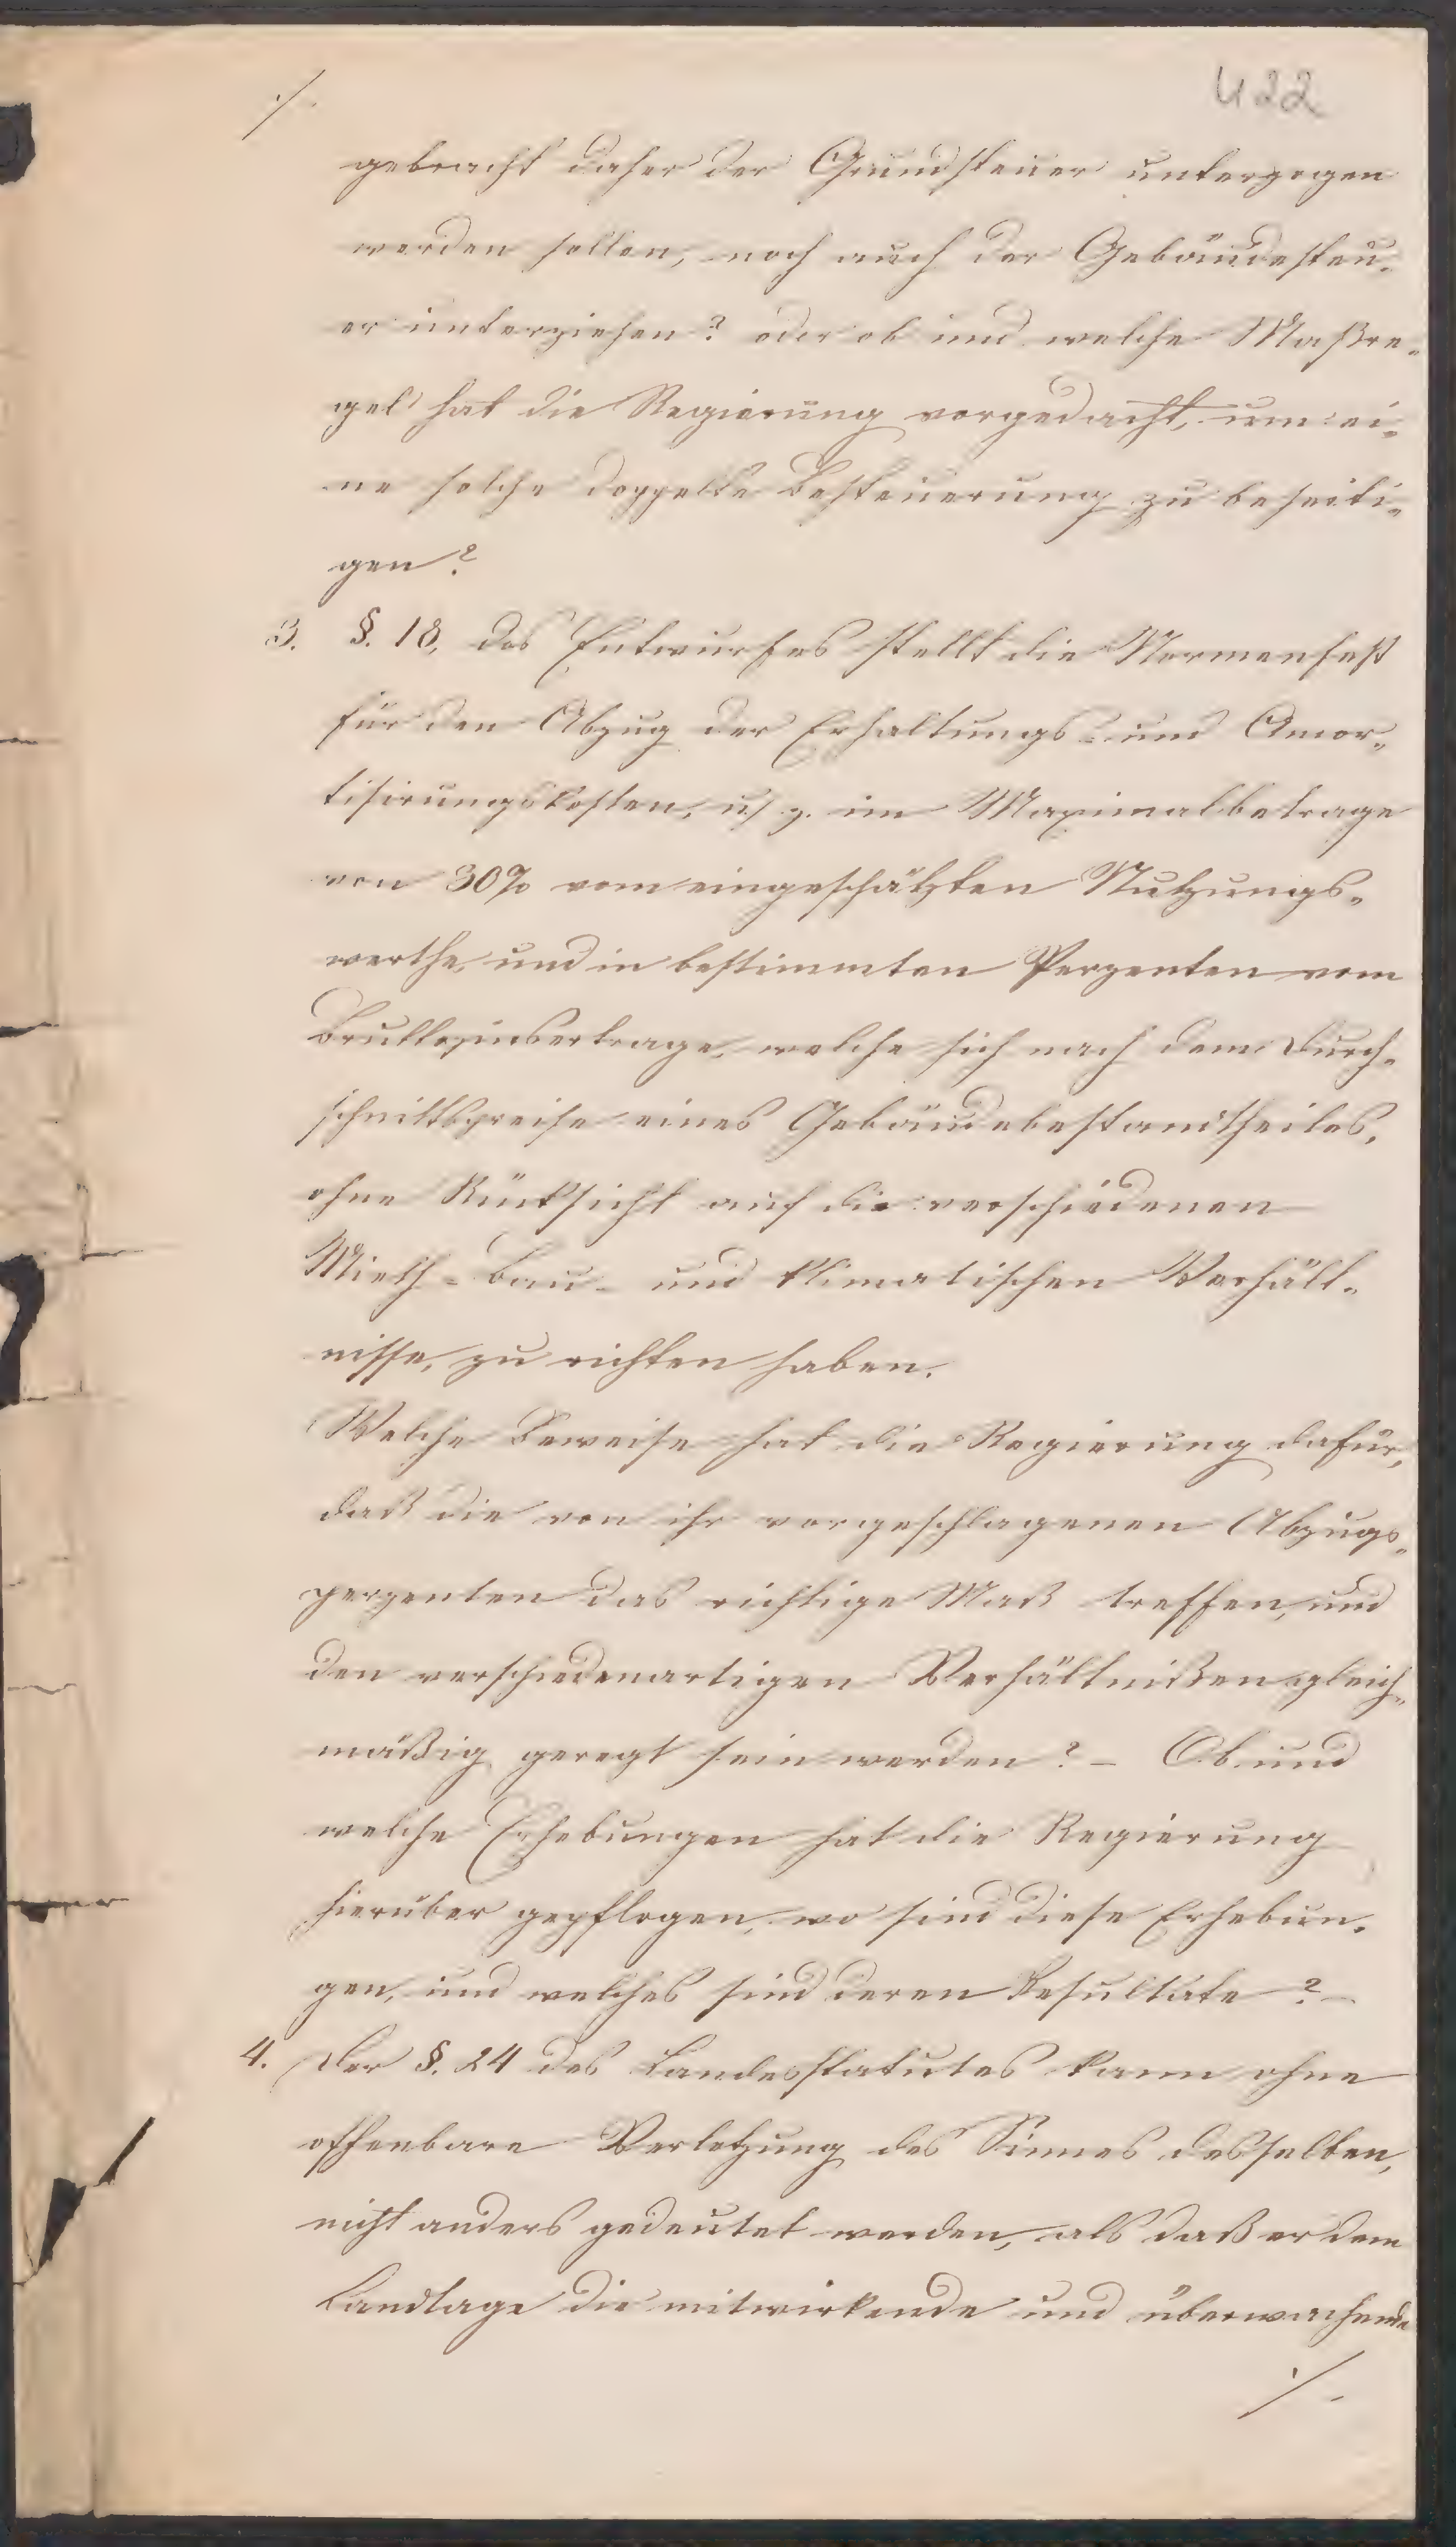 422
./.
gebracht daher der Grundsteuer unterzogen
werden sollen, noch auch der Gebäudesteu-
er unterziehen? oder ob und welche Maßre-
gel hat die Regierung vorgedacht, um ei-
ne solche doppelte Besteuerung zu beseiti-
gen?
3. §. 18, des Entwurfes stellt die Normen fest
für den Abzug der Erhaltungs- und Amor-
tisirungskosten, u. z. im Maximalbetrage
von 30% vom eingeschätzten Nutzungs-
werthe, und in bestimmten Perzenten vom
Bruttozinsertrage, welche sich nach dem Durch-
schnittspreise eines Gebäudebestandtheiles,
ohne Rücksicht auf die verschiedenen
Mieth- Bau- und klimatischen Verhält-
nisse, zu richten haben.
Welche Beweise hat die Regierung dafür,
daß die von ihr vorgeschlagenen Abzugs-
perzenten das richtige Maß treffen, und
den verschiedenartigen Verhältnißen gleich-
mäßig geregt sein werden? – Ob und
welche Erhebungen hat die Regierung
hierüber gepflogen, wo sind diese Erhebun-
gen, und welches sind deren Resultate? –
4. Der §. 24 des Landesstatutes kann ohne
offenbare Verletzung des Sinnes desselben,
nicht anders gedeutet werden, als daß er dem
Landtage die mitwirkende und überwachende
./.